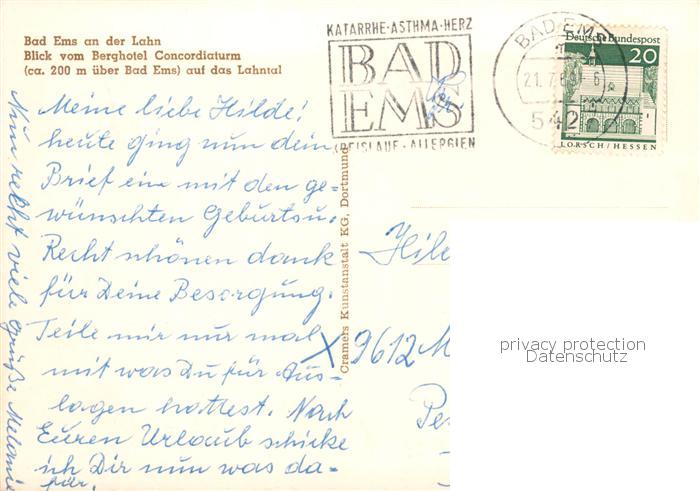 Bad Ems an der Lahn
Blick vom Berghotel Concordiaturm
(ca. 200 m über Bad Ems) auf das Lahntal
KATARRHE·ASTHMA·HERZ
BAD
EMS
KREISLAUF·ALLERGIEN
BAD EMS
21.7.69
542
Deutsche Bundespost
20
LORSCH/HESSEN
Meine liebe Hilde!
heute ging nun dein
Brief ein mit den ge-
wünschten Geburtsu.
Recht schönen dank
für Deine Besorgung.
Teile mir nur mal
mit was Du für Aus-
lagen hattest. Nach
Euren Urlaub schicke
ich Dir nun was da-
für.
Nun recht viele Grüße Melanie
Cramers Kunstanstalt KG, Dortmund
Hil
9612 M
Pe
privacy protection
Datenschutz